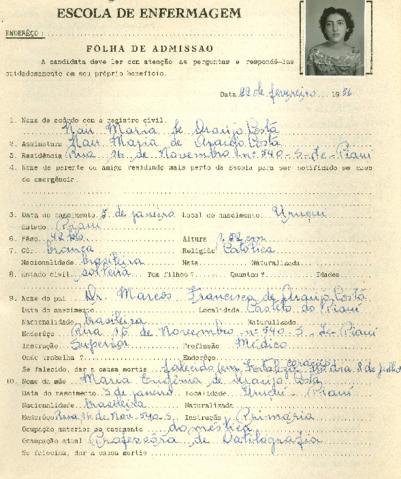 ESCOLA DE ENFERMAGEM
ENDERÊÇO:
FÔLHA DE ADMISSÃO
A candidata deve ler com atenção as perguntas e respondê-las
cuidadosamente em seu próprio benefício.
Data 22 de fevereiro 1956
1. Nome de acôrdo com o registro civil.
Maria de Araújo Costa
2. Assinatura Maria de Araújo Costa
3. Residência Rua 16 de Novembro nº 940-S-de-Piauí
4. Nome de parente ou amigo residindo mais perto da Escola para ser notificado em caso
de emergência.
5. Data do nascimento 5 de janeiro Local do nascimento Uruçuí
Estado Piauí
6. Pêso Altura
7. Côr branca Religião Católica
Nacionalidade brasileira Nata Naturalizada
8. Estado civil solteira Tem filhos? Quantos? Idades
9. Nome do pai Dr. Marcos Francisco de Araújo Costa
Data do nascimento Localidade do Piauí
Nacionalidade brasileira Naturalizado
Enderêço Rua 16 de Novembro nº 940-S-de-Piauí
Instrução Superior Profissão Médico
Onde trabalha? Enderêço
Se falecido, dar a causa mortis falecido em Fortaleza
10. Nome da mãe Maria Eugênia de Araújo Costa
Data do nascimento 5 de janeiro Localidade Uruçuí - Piauí
Nacionalidade brasileira Naturalizada
Enderêço Rua 16 de Nov. 940.S Instrução Primária
Ocupação anterior ao casamento doméstica
Ocupação atual Professôra de Datilografia
Se falecida, dar a causa mortis